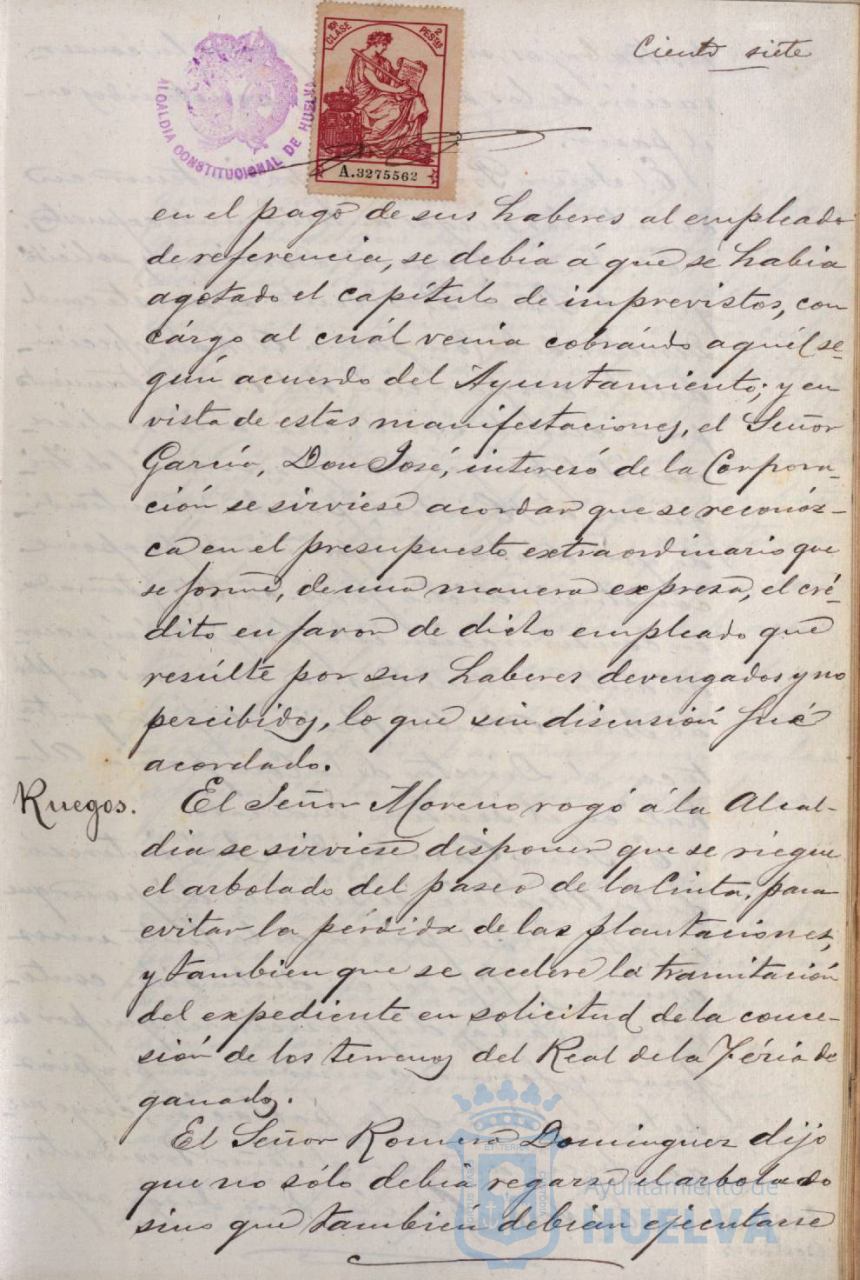 Ciento siete
ALCALDIA CONSTITUCIONAL DE HUELVA
10ª CLASE
2 PESTAS
A.3275562
en el pago de sus haberes al empleado
de referencia, se debia á que se habia
agotado el capítulo de imprevistos, con
cárgo al cuál venia cobrándo aquél se-
gún acuerdo del Ayuntamiento; y en
vista de estas manifestaciones, el Señor
García, Don José, interesó de la Corpora-
ción se sirviese acordar que se reconóz-
ca en el presupuesto extraordinario que
se forme, de una manera expresa, el cré-
dito en favor de dicho empleado que
resúlte por sus haberes devengados y no
percibidos, lo que sin discusión fué
acordado.
Ruegos. El Señor Moreno rogó á la Alcal-
dia se sirviese disponer que se riegue
el arbolado del paseo de la Cinta, para
evitar la pérdida de las plantaciones,
y tambien que se acelere la tramitación
del expediente en solicitud de la conce-
sión de los terrenos del Real de la Féria de
ganados.
El Señor Romero Dominguez dijo
que no sólo debia regarse el arbolado
sino que tambien debian ejecutarse
Ayuntamiento de
HUELVA